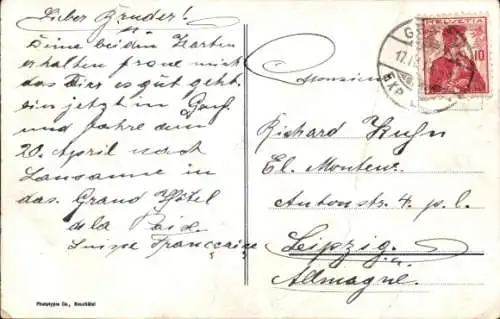 Lieber Bruder!
Deine beiden Karten
erhalten freue mich
das Dirs es gut geht.
bin jetzt in Genf
und fahre den
20. April nach
Lausanne in
das Grand Hôtel
de la Paix.
Suisse Françcaise
Phototypie Co., Neuchâtel
HELVETIA
10
17.IV
EXP
Monsieur
Richard Kuhn
El. Monteur.
Antonstr. 4. p. l.
Leipzig.
Allmagne.